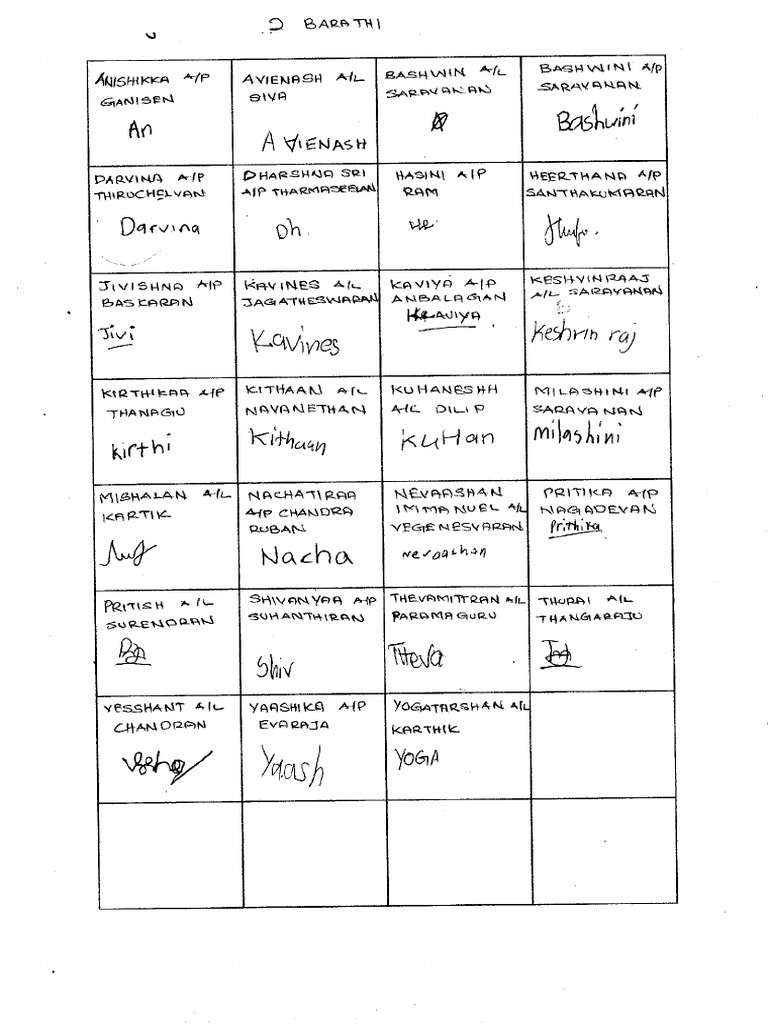 BARATHI
ANISHIKKA A/P
GANISEN
An
AVIENASH A/L
SIVA
AVIENASH
BASHWIN A/L
SARAVANAN
BASHWINI A/P
SARAVANAN
Bashwini
DARVINA A/P
THIRUCHELVAN
Darvina
DHARSHNA SRI
A/P THARMASEELAN
Dh.
HASINI A/P
RAM
HEERTHANA A/P
SANTHAKUMARAN
JIVISHNA A/P
BASKARAN
Jivi
KAVINES A/L
JAGATHESWARAN
Kavines
KAVIYA A/P
ANBALAGIAN
KAVIYA
KESHVINRAAJ
A/L SARAVANAN
Keshrin raj
KIRTHIKAA A/P
THANAGU
kirthi
KITHAAN A/L
NAVANETHAN
Kithaan
KUHANESHH
A/L DILIP
KUHan
MILASHINI A/P
SARAVANAN
Milashini
MISHALAN A/L
KARTIK
NACHATIRAA
A/P CHANDRA
RUBAN
Nacha
NEVAASHAN
IMMANUEL A/L
VEGENESVARAN
Nevaashan
PRITIKA A/P
NAGADEVAN
Prithika
PRITISH A/L
SURENDRAN
SHIVANYAA A/P
SUHANTHIRAN
Shiv
THEVAMITTRAN A/L
PARAMAGURU
THeva
THURAI A/L
THANGARAJU
YESSHANT A/L
CHANDRAN
YAASHIKA A/P
EVARAJA
Yaash
YOGATARSHAN A/L
KARTHIK
YOGA